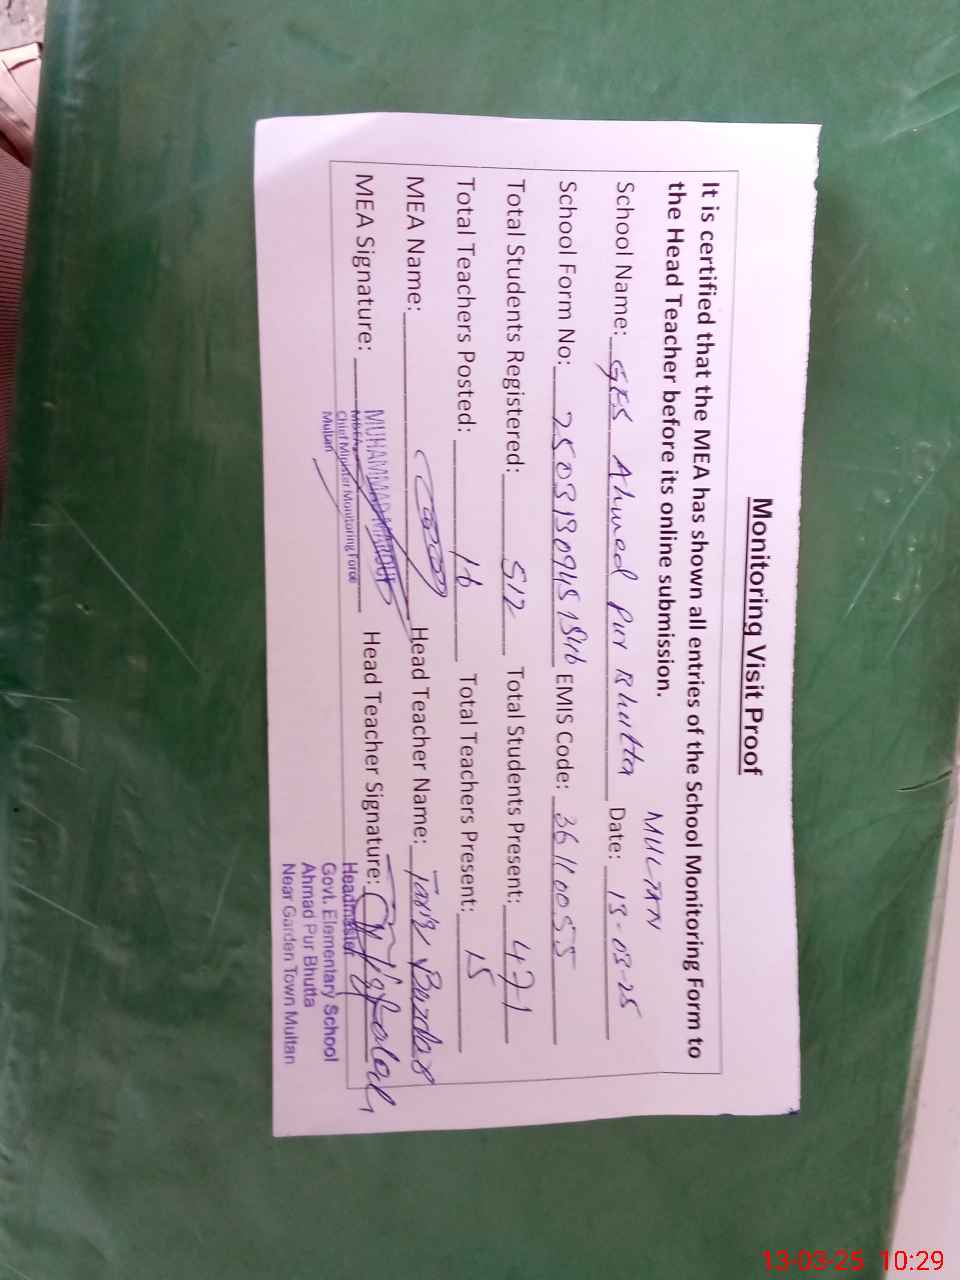 Monitoring Visit Proof
It is certified that the MEA has shown all entries of the School Monitoring Form to
the Head Teacher before its online submission.
MULTAN
School Name: GES Ahmed Pur Bhutta Date: 13-03-25
School Form No: EMIS Code: 36110055
Total Students Registered: 512 Total Students Present: 471
Total Teachers Posted: 16 Total Teachers Present: 15
MEA Name: Head Teacher Name:
MEA Signature: Head Teacher Signature:
MUHAMMAD MAROUF
Chief Minister Monitoring Force
Multan
Headmaster
Govt. Elementary School
Ahmad Pur Bhutta
Near Garden Town Multan
13-03-25 10:29